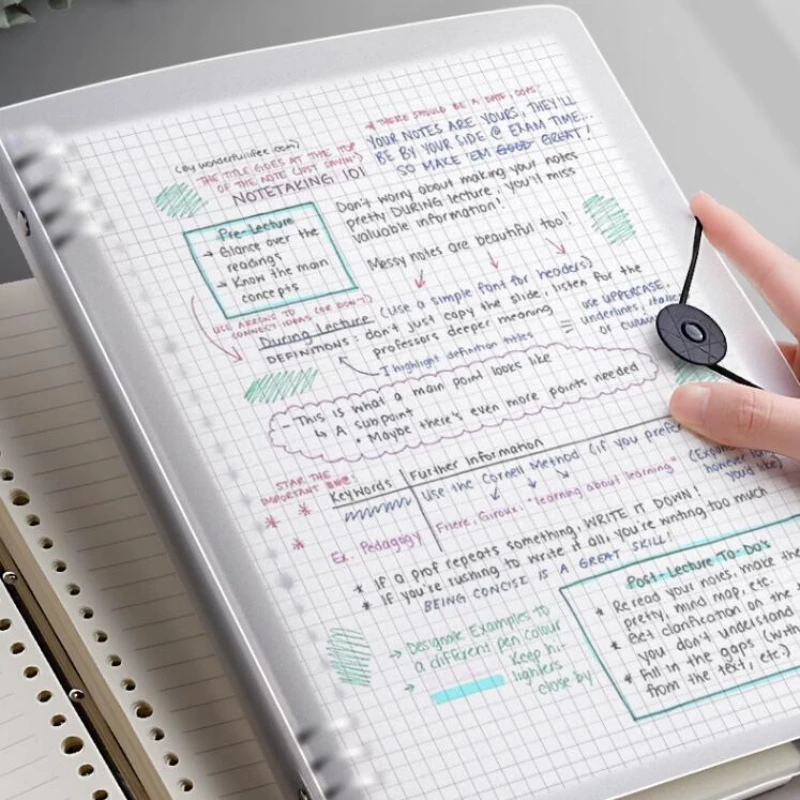 * THERE SHOULD BE A DATE, OOPS!
YOUR NOTES ARE YOURS, THEY'LL
BE BY YOUR SIDE @ EXAM TIME...
SO MAKE 'EM GOOD GREAT!
(by wonderfullifee.com)
THE TITLE GOES AT THE TOP
OF THE NOTE (JUST SAYIN')
NOTETAKING 101
Don't worry about making your notes
pretty DURING lecture, you'll miss
valuable information!
Messy notes are beautiful too!
Pre-Lecture
→ Glance over the
readings
→ Know the main
concepts
USE ARROWS TO
CONNECT IDEAS (OR DON'T)
During Lecture (use a simple font for headers)
DEFINITIONS: don't just copy the slide, listen for the
professors deeper meaning
I highlight definition titles
use UPPERCASE,
underlines, italics
or
- This is what a main point looks like
↳ A subpoint
• Maybe there's even more points needed
STAR THE
IMPORTANT
Keywords
Further Information
Use the Cornell Method (if you prefer
(Expand
however long
you'd like)
Ex. Pedagogy
Friere, Giroux: "learning about learning"
* If a prof repeats something, WRITE IT DOWN!
* If you're rushing to write it all, you're writing too much
BEING CONCISE IS A GREAT SKILL!
→ Designate Examples to
a different pen colour
→ Keep hi-
lighters
close by
Post-Lecture To-Do's
* Reread your notes, make the
pretty, mind map, etc.
* Get clarification on the
you don't understand
* Fill in the gaps (with
from the text, etc.)